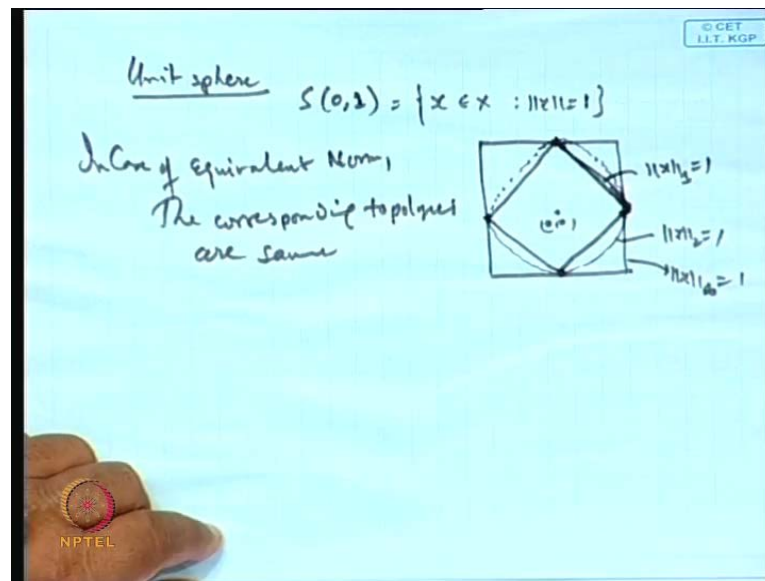 © CET
I.I.T. KGP
Unit sphere S(0,1) = { x ∈ X : ||x|| = 1 }
In Case of equivalent Norm,
The corresponding topolgies
are same
(0,0)
||x||₁ = 1
||x||₂ = 1
||x||∞ = 1
NPTEL